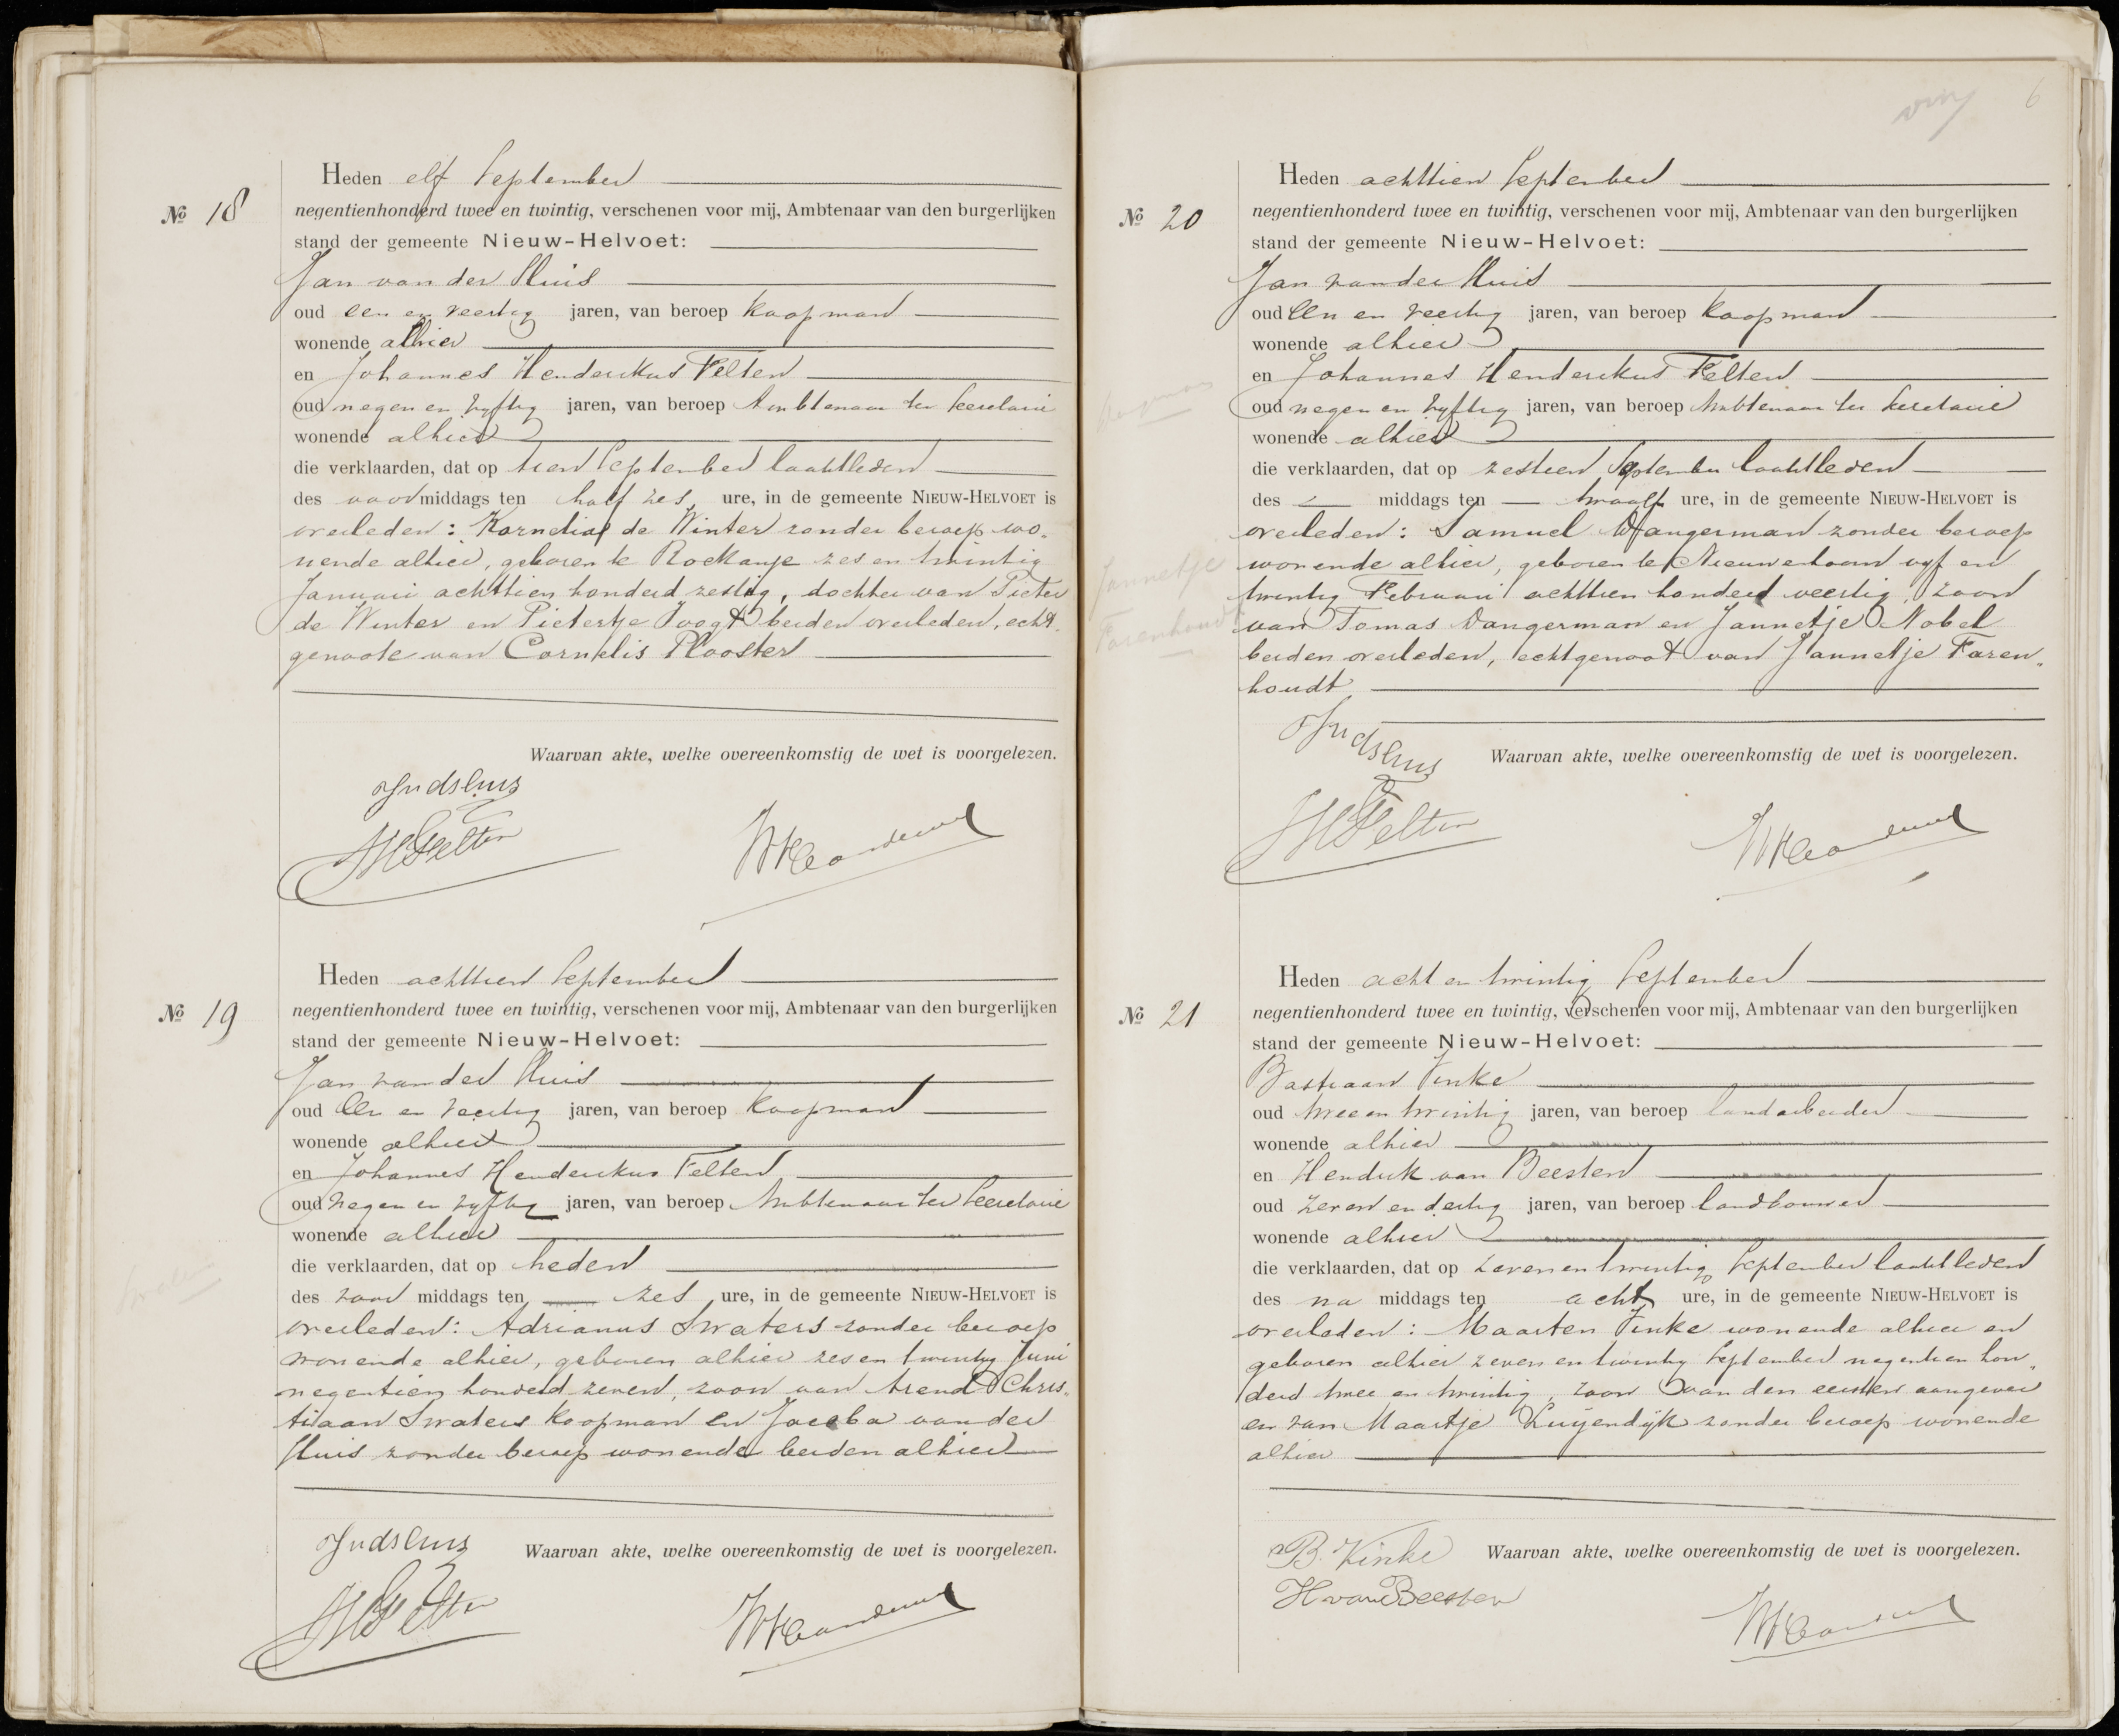 Nº 18
Heden elf September
negentienhonderd twee en twintig, verschenen voor mij, Ambtenaar van den burgerlijken
stand der gemeente Nieuw-Helvoet:
Jan van der Sluis
oud een en veertig jaren, van beroep koopman
wonende alhier
en Johannes Henderikus Felten
oud negen en vyftig jaren, van beroep Ambtenaar ter Secretarie
wonende alhier
die verklaarden, dat op tien September laatstleden
des voormiddags ten half zes ure, in de gemeente NIEUW-HELVOET is
overleden: Kornelia de Winter zonder beroep wo-
nende alhier, geboren te Rockanje zes en twintig
Januari achttien honderd zestig, dochter van Pieter
de Winter en Pietertje Voogt beiden overleden, echt-
genoote van Cornelis Plooster
Waarvan akte, welke overeenkomstig de wet is voorgelezen.
Jvdsluis
JHFelten
Nº 19
Heden achttien September
negentienhonderd twee en twintig, verschenen voor mij, Ambtenaar van den burgerlijken
stand der gemeente Nieuw-Helvoet:
Jan van der Sluis
oud een en veertig jaren, van beroep koopman
wonende alhier
en Johannes Henderikus Felten
oud negen en vyftig jaren, van beroep Ambtenaar ter Secretarie
wonende alhier
die verklaarden, dat op heden
des voor middags ten zes ure, in de gemeente NIEUW-HELVOET is
overleden: Adrianus Swaters zonder beroep
wonende alhier, geboren alhier zes en twintig Juni
negentien honderd zeven, zoon van Arend Chris-
tiaan Swaters koopman en Jacoba van der
Sluis zonder beroep wonende beiden alhier
Waarvan akte, welke overeenkomstig de wet is voorgelezen.
Jvdsluis
JHFelten
6
Nº 20
Heden achttien September
negentienhonderd twee en twintig, verschenen voor mij, Ambtenaar van den burgerlijken
stand der gemeente Nieuw-Helvoet:
Jan van der Sluis
oud een en veertig jaren, van beroep koopman
wonende alhier
en Johannes Henderikus Felten
oud negen en vyftig jaren, van beroep Ambtenaar ter Secretarie
wonende alhier
die verklaarden, dat op zestien September laatstleden
des middags ten twaalf ure, in de gemeente NIEUW-HELVOET is
overleden: Samuel Dangerman zonder beroep
wonende alhier, geboren te Nieuwenhoorn vyf en
twintig Februari achttien honderd veertig, zoon
van Tomas Dangerman en Jannetje Nobel
beiden overleden, echtgenoot van Jannetje Faren-
houdt
Jannetje
Farenhoud
Waarvan akte, welke overeenkomstig de wet is voorgelezen.
Jvdsluis
JHFelten
Nº 21
Heden acht en twintig September
negentienhonderd twee en twintig, verschenen voor mij, Ambtenaar van den burgerlijken
stand der gemeente Nieuw-Helvoet:
Bastiaan Vinke
oud twee en twintig jaren, van beroep landarbeider
wonende alhier
en Hendrik van Beesten
oud zeven en dertig jaren, van beroep landbouwer
wonende alhier
die verklaarden, dat op zeven en twintig September laatstleden
des na middags ten acht ure, in de gemeente NIEUW-HELVOET is
overleden: Maarten Vinke wonende alhier en
geboren alhier zeven en twintig September negentien hon-
derd twee en twintig, zoon van den eersten aangever
en van Maartje Luijendijk zonder beroep wonende
alhier
Waarvan akte, welke overeenkomstig de wet is voorgelezen.
B. Vinke
H van Beesten